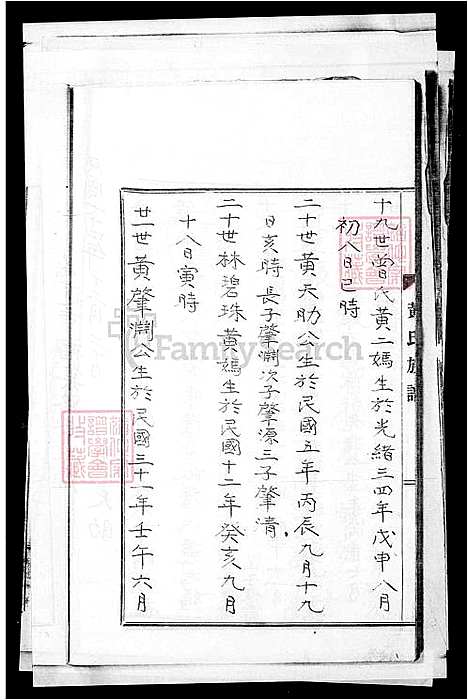 黃氏族譜
十九世曾氏黃二媽生於光緒三四年戊申八月
初八日巳時
二十世黃天助公生於民國五年丙辰九月十九
日亥時長子肇淵次子肇源三子肇清
二十世林碧珠黃媽生於民國十二年癸亥九月
十八日寅時
廿一世黃肇淵公生於民國三十一年壬午六月
FamilySearch